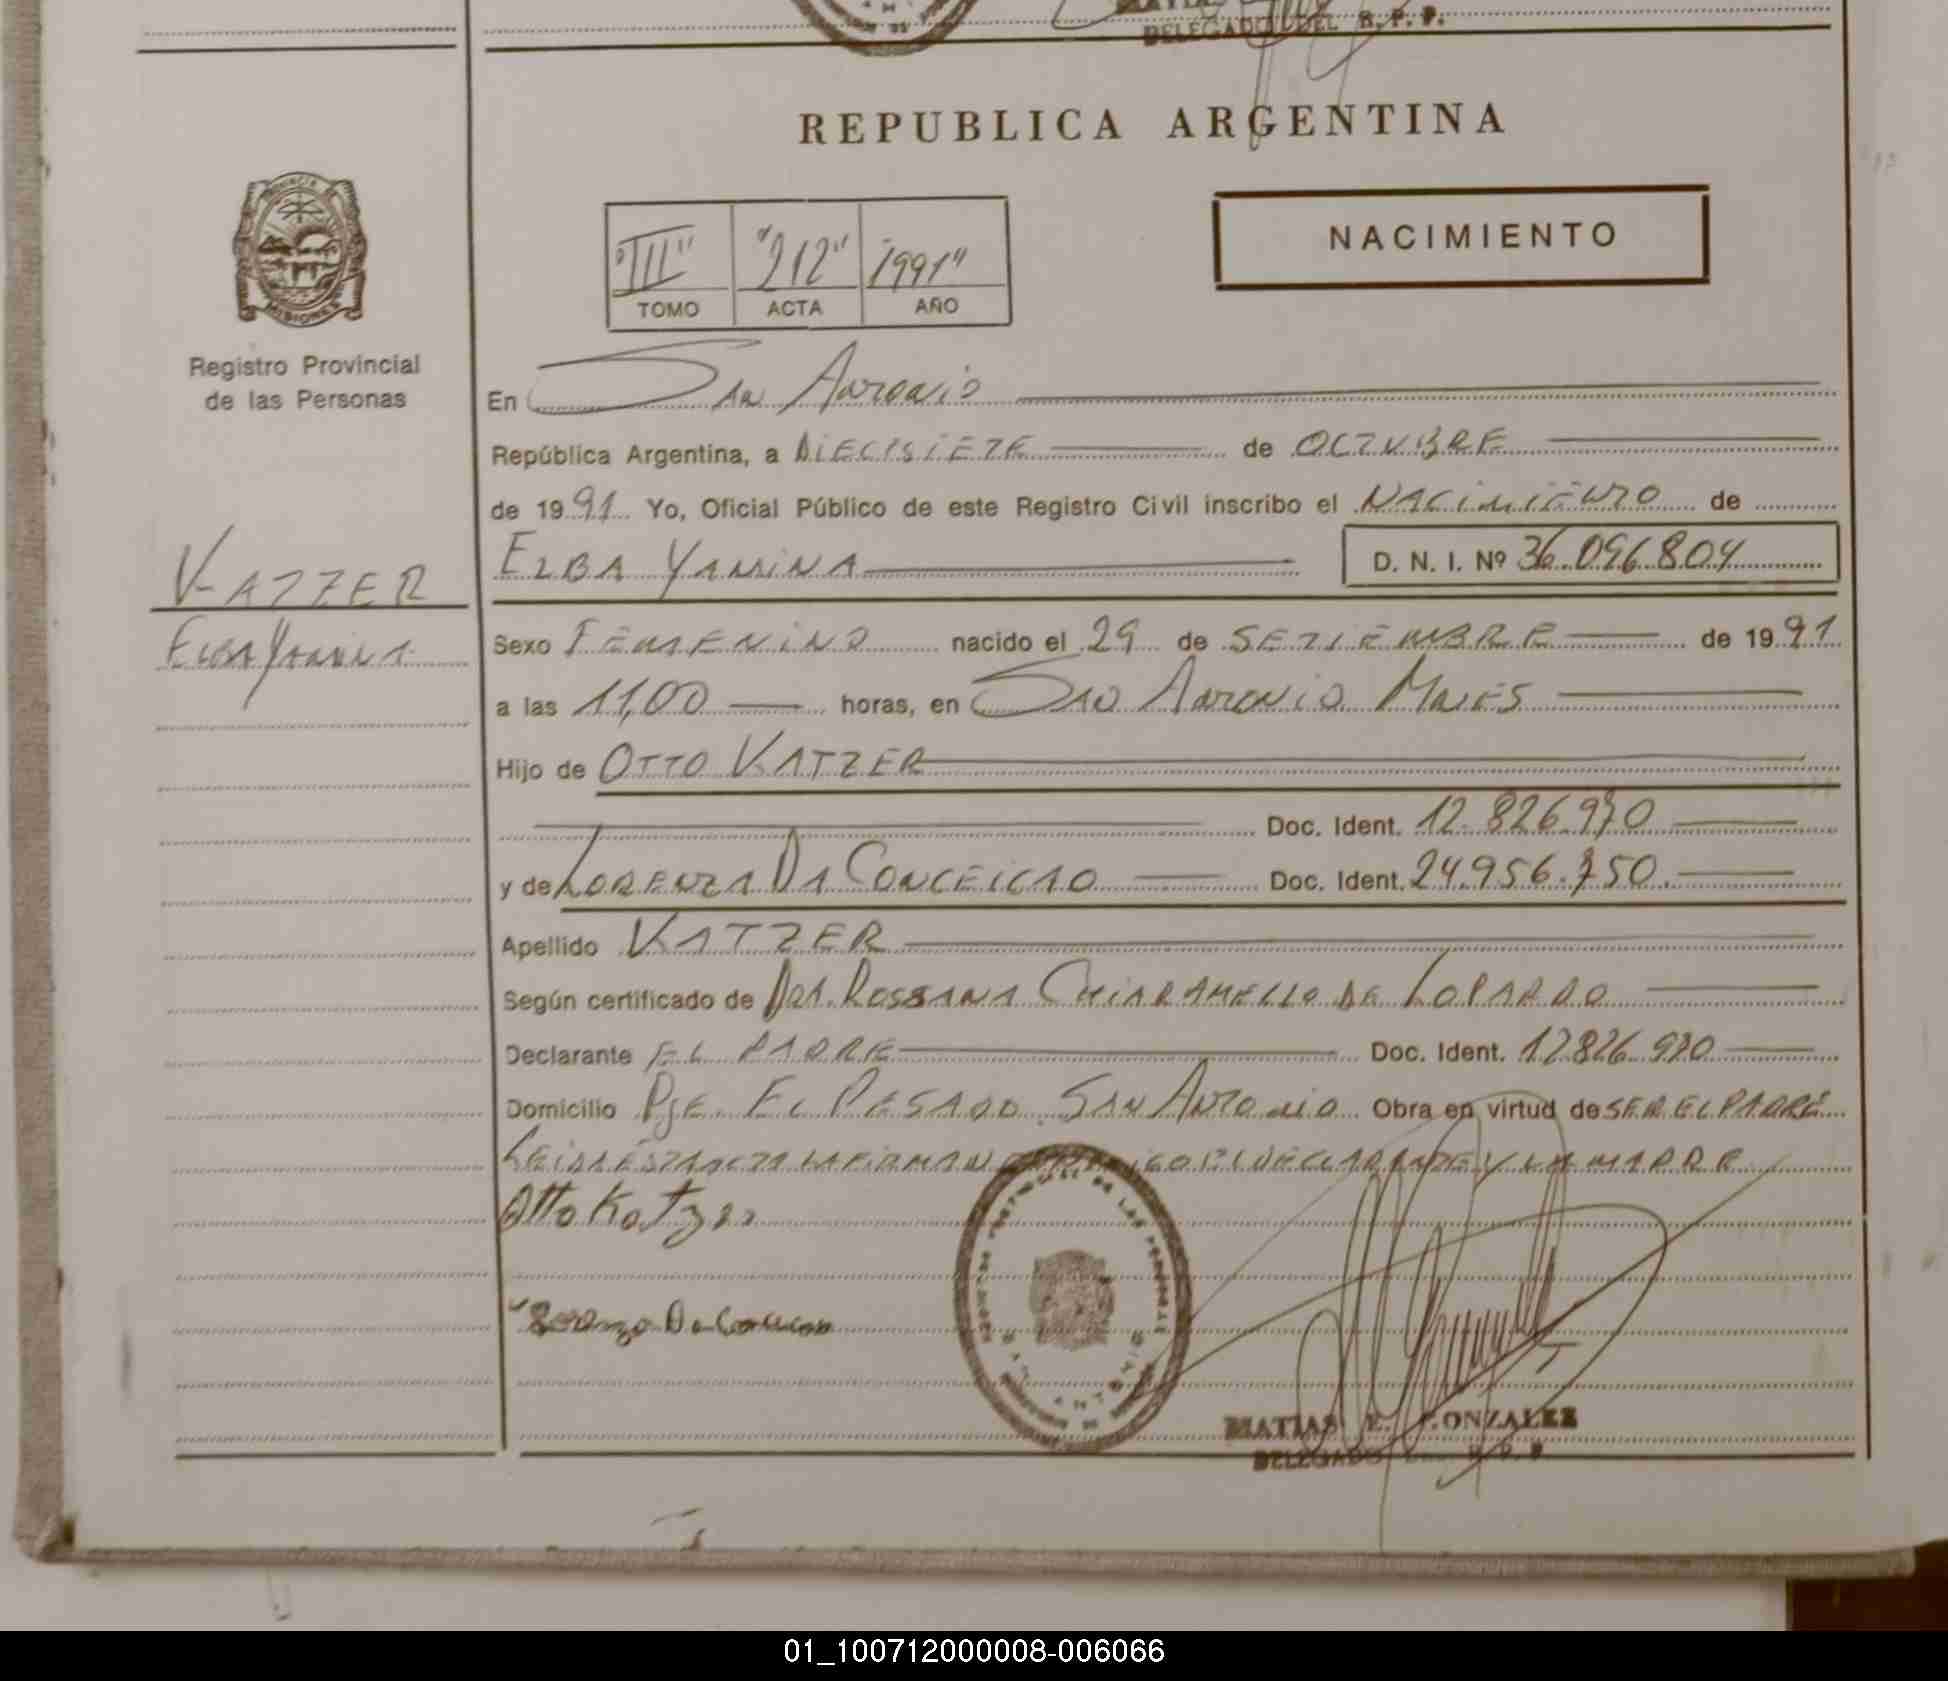 DELEGADO DEL R. P. P.
REPUBLICA ARGENTINA
NACIMIENTO
"III" "212" "1991"
TOMO ACTA AÑO
MISIONES
Registro Provincial
de las Personas
En San Antonio
República Argentina, a DIECISIETE de OCTUBRE
de 1991 Yo, Oficial Público de este Registro Civil inscribo el NACIMIENTO de
KATZER
ELBA YAMINA D. N. I. Nº 36.096.804
ELBA YAMINA
Sexo FEMENINO nacido el 29 de SETIEMBRE de 1991
a las 11,00 horas, en SAN ANTONIO MNES
Hijo de OTTO KATZER
Doc. Ident. 12.826.970
y de LORENZA DA CONCEICAO Doc. Ident. 24.956.750
Apellido KATZER
Según certificado de DRA. ROSSANA CHIARAMELLO DE LOPARDO
Declarante EL PADRE Doc. Ident. 12826970
Domicilio PJE. EL PESADO SAN ANTONIO Obra en virtud de SER EL PADRE
LEIDA ESTA ACTA LA FIRMAN EL DECLARANTE Y LA MADRE
Otto Katzer
Lorenza Da Conceicao
MATIAS E. GONZALEZ
DELEGADO DEL R. P. P.
01_100712000008-006066